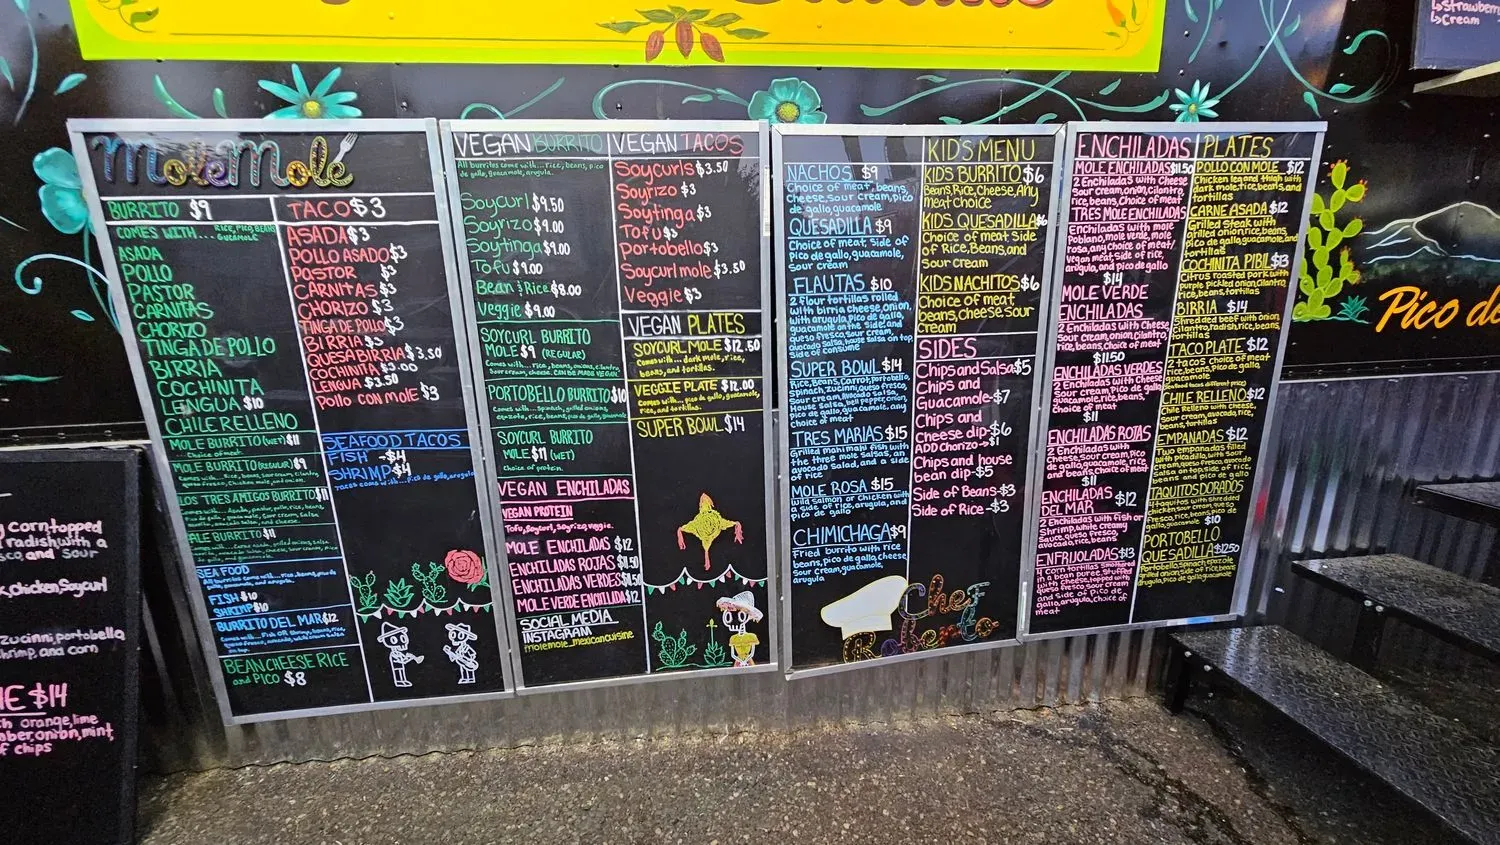 Strawberry
Cream
MoleMole
BURRITO $9
COMES WITH... RICE, PICO, BEANS
GUACAMOLE
ASADA
POLLO
PASTOR
CARNITAS
CHORIZO
TINGA DE POLLO
BIRRIA
COCHINITA
LENGUA $10
CHILE RELLENO
MOLE BURRITO (WET) $11
Choice of meat.
MOLE BURRITO (REGULAR) $9
LOS TRES AMIGOS BURRITO $11
ALE BURRITO $11
SEAFOOD
FISH $10
SHRIMP $10
BURRITO DEL MAR $12
BEAN CHEESE RICE
and PICO $8
TACO $3
ASADA $3
POLLO ASADO $3
PASTOR $3
CARNITAS $3
CHORIZO $3
TINGA DE POLLO $3
BIRRIA $3
QUESABIRRIA $3.50
COCHINITA $3.00
LENGUA $3.50
Pollo con mole $3
SEAFOOD TACOS
FISH - $4
SHRIMP $4
Tacos come with... Pico de gallo, arugula
VEGAN BURRITO
All burritos come with... rice, beans, pico
de gallo, guacamole, arugula.
Soycurl $9.50
Soyrizo $9.00
Soytinga $9.00
Tofu $9.00
Bean & Rice $8.00
Veggie $9.00
SOYCURL BURRITO
MOLE $9 (REGULAR)
PORTOBELLO BURRITO $10
SOYCURL BURRITO
MOLE $11 (WET)
choice of protein.
VEGAN ENCHILADAS
VEGAN PROTEIN
Tofu, Soycurl, Soyrizo, veggie.
MOLE ENCHILADAS $12
ENCHILADAS ROJAS $11.50
ENCHILADAS VERDES $11.50
MOLE VERDE ENCILLADA $12
SOCIAL MEDIA
INSTAGRAM
molemole_mexicancuisine
VEGAN TACOS
Soycurls $3.50
Soyrizo $3
Soytinga $3
Tofu $3
Portobello $3
Soycurl mole $3.50
Veggie $3
VEGAN PLATES
SOYCURL MOLE $12.50
Comes with... dark mole, rice,
beans, and tortillas.
VEGGIE PLATE $12.00
Comes with... pico de gallo, guacamole,
rice, and tortillas.
SUPER BOWL $14
NACHOS $9
Choice of meat, beans,
Cheese, sour cream, pico
de gallo, guacamole
QUESADILLA $9
Choice of meat, side of
Pico de gallo, guacamole,
sour cream
FLAUTAS $10
2 flour tortillas rolled
with birria cheese, onion,
with arugula, pico de gallo,
guacamole on the side, and
queso fresco sour cream,
avocado salsa, house salsa on top,
Side of consume
SUPER BOWL $14
Rice, Beans, Carrot, portobello,
Spinach, zucinni, queso fresco,
Sour cream, avocado salsa,
House salsa, bell pepper, onion,
Pico de gallo, guacamole. any
Choice of meat
TRES MARIAS $15
Grilled mahi mahi fish with
the three mole salsas, an
avocado salad, and a side
of rice
MOLE ROSA $15
Wild salmon or Chicken with
a side of rice, arugula, and
Pico de gallo
CHIMICHAGA $9
Fried burrito with rice
beans, pico de gallo, cheese,
Sour cream, guacamole,
arugula
KID'S MENU
KIDS BURRITO $6
Beans, Rice, Cheese, Any
meat choice
KIDS QUESADILLA $6
Choice of meat, Side
of Rice, Beans, and
sour cream
KIDS NACHITOS $6
Choice of meat
beans, cheese, sour
Cream
SIDES
Chips and Salsa $5
Chips and
Guacamole - $7
Chips and
Cheese dip - $6
ADD Chorizo - $1
Chips and house
bean dip - $5
Side of Beans - $3
Side of Rice - $3
Chef
Roberto
ENCHILADAS
MOLE ENCHILADAS $11.50
2 Enchiladas with Cheese
Sour cream, onion, cilantro,
rice, beans, Choice of meat
TRES MOLE ENCHILADAS
Enchiladas with mole
Poblano, mole verde, mole
rosa, any choice of meat/
vegan meat, Side of rice,
arugula, and pico de gallo
$14
MOLE VERDE
ENCHILADAS
2 Enchiladas with Cheese,
Sour cream, onions, cilantro,
rice, beans, Choice of meat
$11.50
ENCHILADAS VERDES
2 Enchiladas with Cheese
Sour cream, pico de gallo,
guacamole, rice, beans,
choice of meat
$11
ENCHILADAS ROJAS
2 Enchiladas with
Cheese, Sour cream, Pico
de gallo, guacamole, rice,
and beans, choice of meat
$11
ENCHILADAS
DEL MAR $12
2 Enchiladas with fish or
Shrimp, white creamy
Sauce, queso fresco,
avocado, rice, beans
ENFRIJOLADAS $13
3 corn tortillas smothered
in a bean puree. Stuffed
with cheese, topped with
queso fresco, sour cream
and Side of pico de
gallo, arugula, choice of
meat
PLATES
POLLO CON MOLE $12
Chicken leg and thigh with
dark mole, rice, beans, and
tortillas
CARNE ASADA $12
Grilled Steak with
grilled onion, rice, beans,
pico de gallo, guacamole, and
tortillas
COCHINITA PIBIL $13
Citrus roasted pork with
purple pickled onion, cilantro,
rice, beans, tortillas
BIRRIA $14
Shredded beef with onion,
cilantro, radish, rice, beans,
tortillas
TACO PLATE $12
2 tacos Choice of meat
rice, beans, pico de gallo,
guacamole
(seafood tacos different price)
CHILE RELLENO $12
Chile Relleno with cheese,
sour cream, avocado, rice,
beans, tortillas
EMPANADAS $12
Two empanadas filled
with picadillo, with sour
cream, queso fresco, avocado
salsa on top, side of rice,
beans and pico de gallo
TAQUITOS DORADOS
4 taquitos with shredded
chicken, sour cream, queso
fresco, rice, beans, pico de
gallo, guacamole $10
PORTOBELLO
QUESADILLA $12.50
Portobello, Spinach, epazote
grilled onion, side of rice, beans,
arugula, Pico de gallo, guacamole
Pico de
corn topped
radish with a
sco, and sour
, chicken, Soycurl
zucinni, portobello
shrimp, and corn
E $14
h orange, lime
ber, onion, mint,
f chips